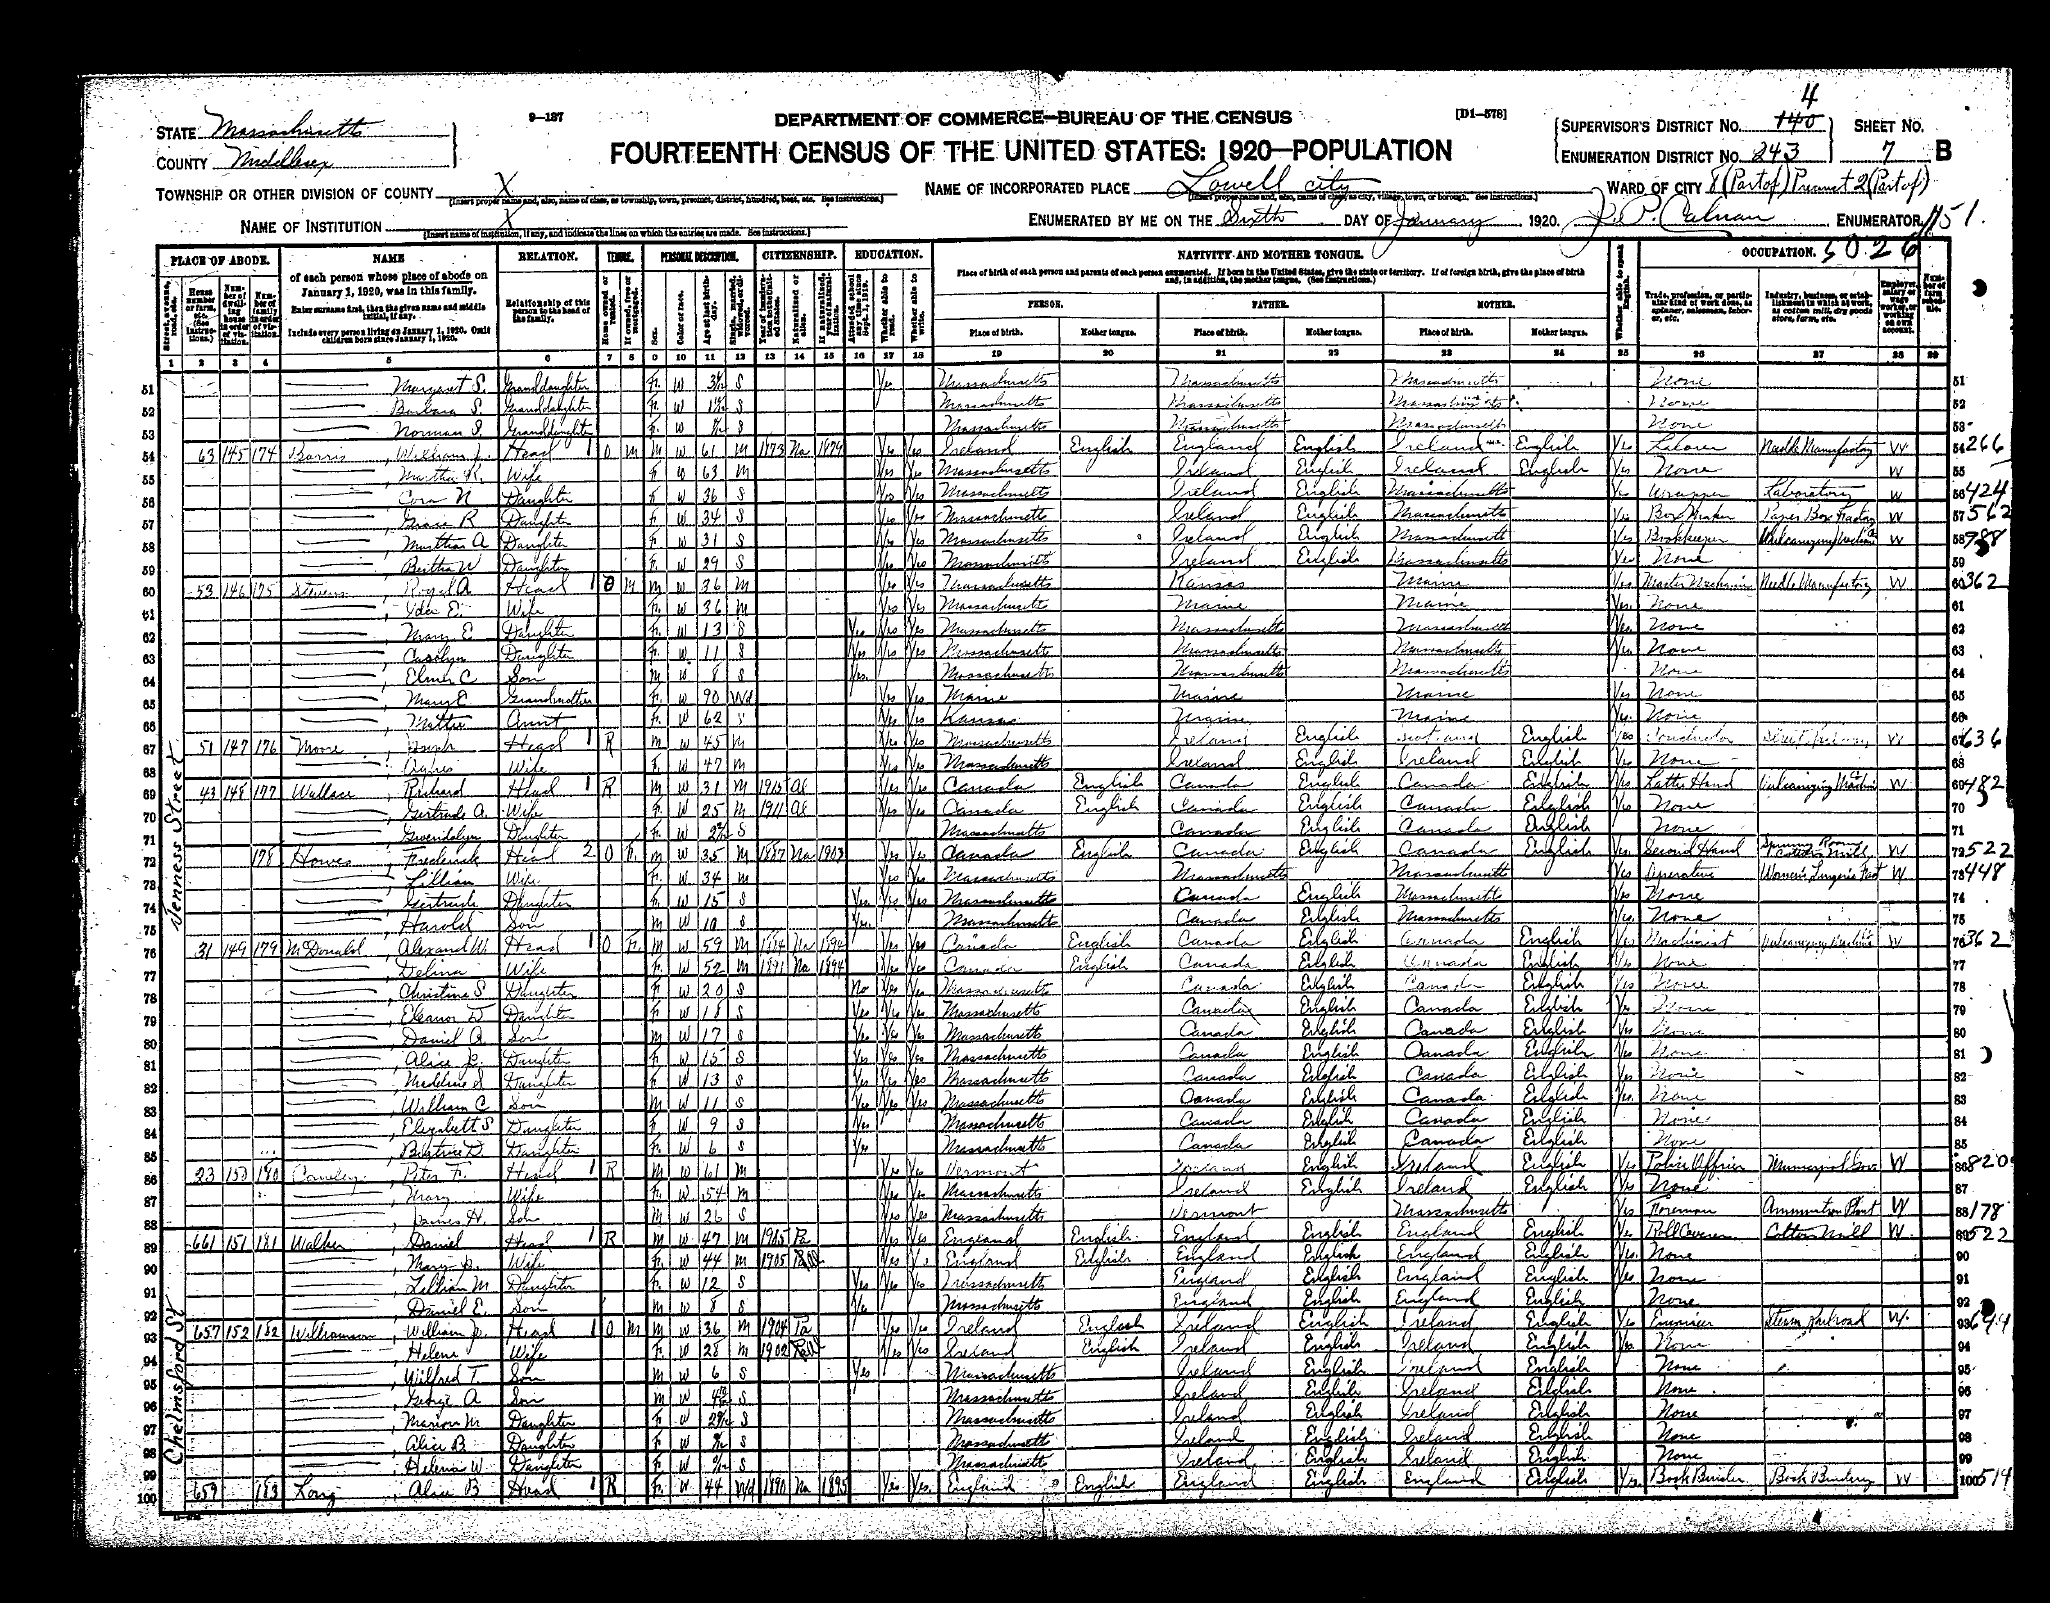 4
9—137 DEPARTMENT OF COMMERCE—BUREAU OF THE CENSUS [D1—578]
STATE Massachusetts
COUNTY Middlesex
FOURTEENTH CENSUS OF THE UNITED STATES: 1920—POPULATION
SUPERVISOR'S DISTRICT NO. 140 SHEET NO.
ENUMERATION DISTRICT NO. 243 7 B
TOWNSHIP OR OTHER DIVISION OF COUNTY X
NAME OF INCORPORATED PLACE Lowell city
WARD OF CITY 8 (Part of) Precinct 2 (Part of)
NAME OF INSTITUTION X
ENUMERATED BY ME ON THE Sixth DAY OF January, 1920. ENUMERATOR 1151.
5026
PLACE OF ABODE. NAME RELATION. TENURE. PERSONAL DESCRIPTION. CITIZENSHIP. EDUCATION. NATIVITY AND MOTHER TONGUE. OCCUPATION.
of each person whose place of abode on January 1, 1920, was in this family.
Enter surname first, then the given name and middle initial, if any.
Include every person living on January 1, 1920. Omit children born since January 1, 1920.
Relationship of this person to the head of the family.
Place of birth of each person and parents of each person enumerated. If born in the United States, give the state or territory. If of foreign birth, give the place of birth and, in addition, the mother tongue. (See instructions.)
PERSON. FATHER. MOTHER.
Place of birth. Mother tongue. Place of birth. Mother tongue. Place of birth. Mother tongue.
1 2 3 4 5 6 7 8 9 10 11 12 13 14 15 16 17 18 19 20 21 22 23 24 25 26 27 28 29
Jenness Street
51 Margaret S. Granddaughter F. W S Yes Massachusetts Massachusetts Massachusetts None 51
52 Barbara S. Granddaughter F. W S Massachusetts Massachusetts Massachusetts None 52
53 Norman S. Granddaughter F. W S Massachusetts Massachusetts Massachusetts None 53
54 63 145 174 William J. Head 1 O M M W 61 M 1873 Na Yes Yes Ireland English England English Ireland English Yes Laborer Needle Manufactory W 54 266
55 Martha R. Wife F W 63 M Yes Yes Massachusetts Ireland English Ireland English Yes None W 55
56 Cora N. Daughter F W 36 S Yes Yes Massachusetts Ireland English Massachusetts Yes Wrapper Laboratory W 56 424
57 Grace R Daughter F. W 34 S Yes Yes Massachusetts Ireland English Massachusetts Yes Box Maker Paper Box Factory W 57 562
58 A Daughter F. W 31 S Yes Yes Massachusetts Ireland English Massachusetts Yes Bookkeeper W 58 988
59 Bertha W Daughter F. W 29 S Yes Yes Massachusetts Ireland English Massachusetts Yes None 59
60 53 146 175 Stevens, A. Head 1 O M M W 36 M Yes Yes Massachusetts Kansas Maine Yes Master Mechanic Needle Manufactory W 60 362
61 Ida E. Wife F. W 36 M Yes Yes Massachusetts Maine Maine Yes. None 61
62 Mary E Daughter F. W 13 S Yes Yes Yes Massachusetts Massachusetts Massachusetts Yes. None 62
63 Carolyn Daughter F. W 11 S Yes Yes Yes Massachusetts Massachusetts Massachusetts Yes None 63
64 Elmer C Son M W 8 S Yes. Massachusetts Massachusetts Massachusetts None 64
65 Mary E Grandmother F. W 90 Wd Yes Yes Maine Maine Maine Yes None 65
66 Mattie Aunt F. W 62 Yes Yes Kansas Maine Maine Yes. None 66
67 51 147 176 Moore, Joseph Head 1 R M W 45 M Yes Yes Massachusetts Ireland English Scotland English Yes Conductor Street Railway W 67 636
68 Agnes Wife F. W 47 M Yes Yes Massachusetts Ireland English Ireland English Yes None 68
69 43 148 177 Wallace, Richard Head 1 R M W 31 M 1915 Al Yes Yes Canada English Canada English Canada English Yes Lathe Hand W 69 482
70 Gertrude A. Wife F. W 25 M 1911 Al Yes Yes Canada English Canada English Canada English Yes None 70
71 Gwendolyn Daughter F. W S Massachusetts Canada English Canada English None 71
72 178 Howes, Frederick Head 2 O F. M W 35 M 1887 Na 1903 Yes Yes Canada English Canada English Canada English Yes Second Hand Spinning Room Cotton Mill W 72 522
73 Lillian Wife F. W. 34 M Yes Yes Massachusetts Massachusetts Massachusetts Yes Operative W 73 448
74 Gertrude Daughter F. W 15 S Yes Yes Yes Massachusetts Canada English Massachusetts Yes None 74
75 Harold Son M W 10 S Yes. Massachusetts Canada English Massachusetts Yes. None 75
76 31 149 179 McDonald, Head 1 O F. M W 59 M 1884 Na 1894 Yes Yes Canada English Canada English Canada English Yes Machinist W 76 362
77 Delina Wife F. W 52 M 1891 Na 1894 Yes Yes Canada English Canada English Canada English Yes None 77
78 Christina S Daughter F W 20 S No Yes Yes Massachusetts Canada English Canada English Yes None 78
79 Eleanor Daughter F W 18 S Yes Yes Yes Massachusetts Canada English Canada English Yes None 79
80 Daniel A Son M W 17 S Yes Yes Yes Massachusetts Canada English Canada English Yes None 80
81 Alice J. Daughter F. W 15 S Yes Yes Yes Massachusetts Canada English Canada English Yes None 81
82 Madeline S Daughter F. W 13 S Yes Yes Yes Massachusetts Canada English Canada English Yes None 82
83 William C Son M W 11 S Yes Yes Yes Massachusetts Canada English Canada English Yes. None 83
84 Elizabeth S Daughter F W 9 S Yes Massachusetts Canada English Canada English None 84
85 Beatrice D. Daughter F. W 6 S Yes Massachusetts Canada English Canada English None 85
86 23 150 180 Peter F. Head 1 R M W 61 M Yes Yes Vermont Ireland English Ireland English Yes Police Officer W 86 820
87 Mary Wife F. W 54 M Yes Yes Massachusetts Ireland English Ireland English Yes None 87
88 James H. Son M W 26 S Yes Yes Massachusetts Vermont Massachusetts Yes Foreman Ammunition Plant W 88 178
Chelmsford St
89 661 151 181 Walker, Daniel Head 1 R M W 47 M 1905 Pa Yes Yes England English England English England English Yes Roll Coverer Cotton Mill W. 89 522
90 Mary Wife F. W 44 M 1905 Yes Yes England English England English England English Yes. None 90
91 Lillian M Daughter F. W 12 S Yes Yes Yes Massachusetts England English England English Yes. None 91
92 Daniel E. Son M W 8 S Yes Massachusetts England English England English None 92
93 657 152 182 Williamson, William J. Head 1 O M M W 36 M 1904 Pa Yes Yes Ireland English Ireland English Ireland English Yes Engineer Steam Railroad W. 93 644
94 Helena Wife F. W 28 M 1902 Yes Yes Ireland English Ireland English Ireland English Yes. None 94
95 Wilfred T. Son M W 6 S Yes Massachusetts Ireland English Ireland English None 95
96 George A Son M W S Massachusetts Ireland English Ireland English None 96
97 Marion M Daughter F. W S Massachusetts Ireland English Ireland English None 97
98 Alice B Daughter F W S Massachusetts Ireland English Ireland English None 98
99 Helena W Daughter F W S Massachusetts Ireland English Ireland English None 99
100 659 183 Long, Alice B Head 1 R F. W 44 Wd 1890 Na 1895 Yes Yes. England English England English England English Yes. Book Binder Book Bindery W 100 514